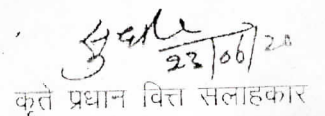 23/06/20
कृते प्रधान वित्त सलाहकार